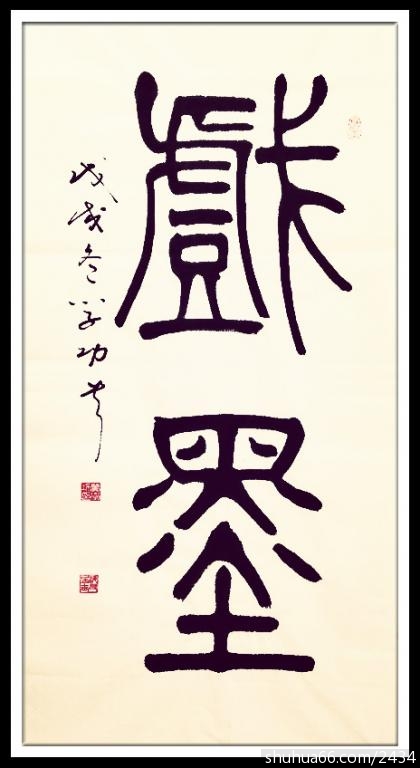 戲墨
戊戌冬學功書
shuhua66.com/2434